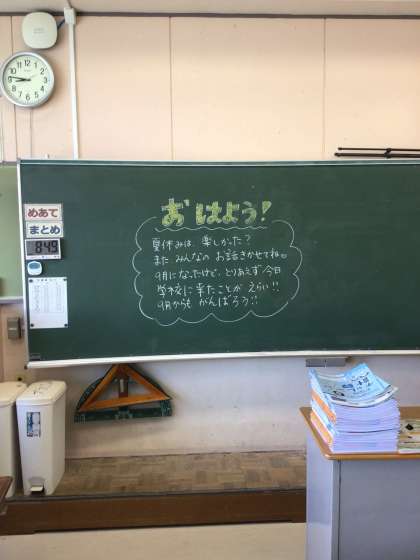 おはよう!
夏休みは、楽しかった?
また、みんなの お話きかせてね。
9月になったけど、とりあえず今日
学校に来たことが えらい!!
9月からも がんばろう!!
めあて
まとめ
849